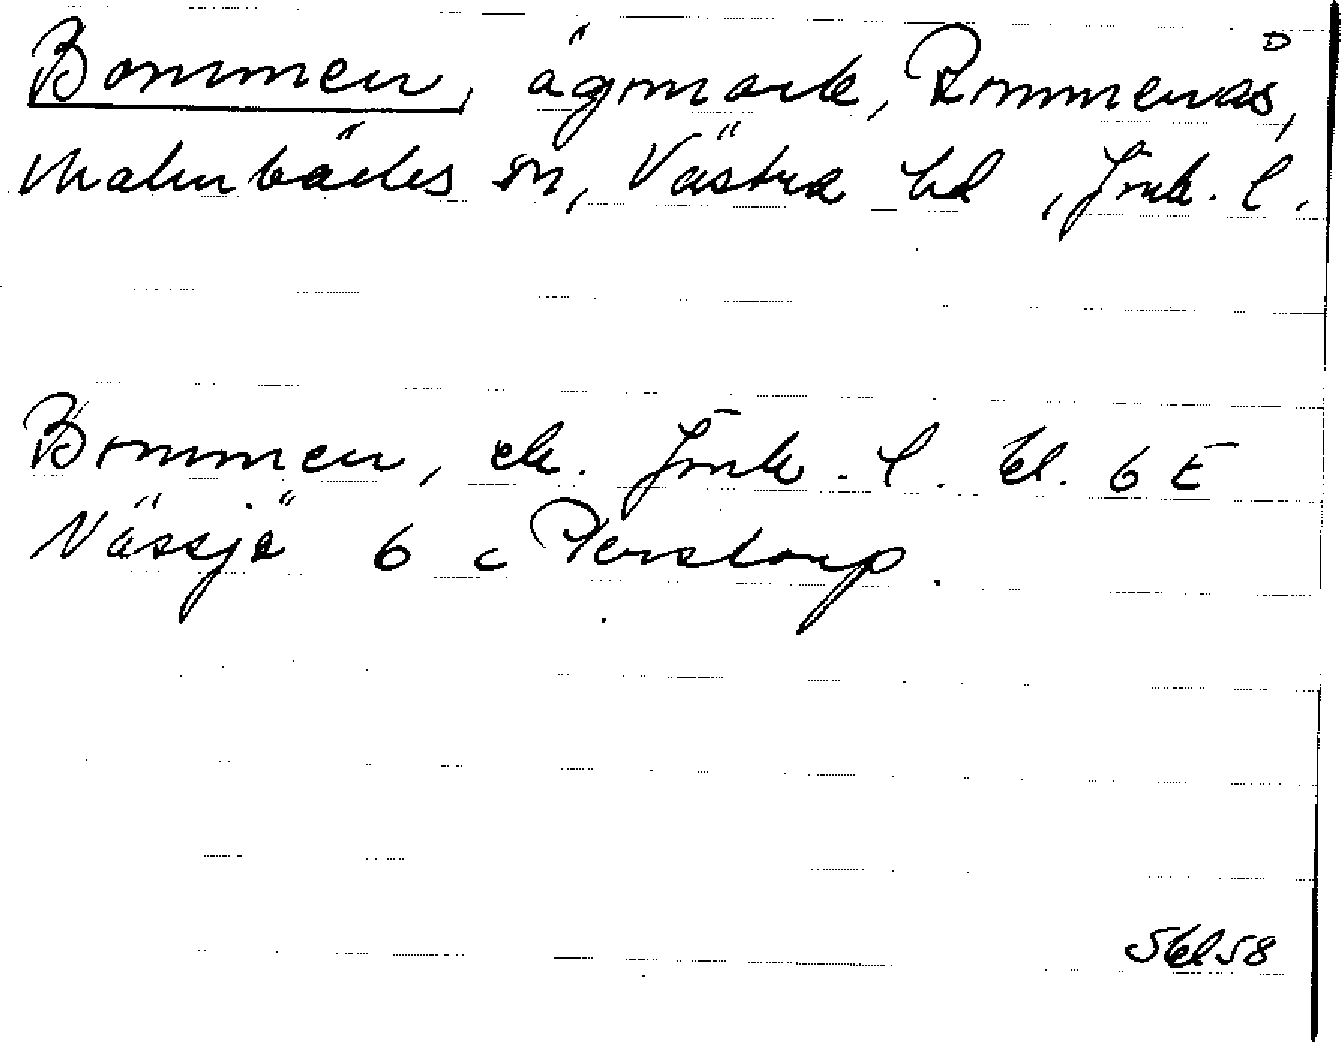 Bommen, ägomark, Rommenås,
Malmbäcks sn, Västra hd, Jönk. l.
Bommen, ek. Jönk. l. bl. 6 E
Nässjö 6 c Perstorp.